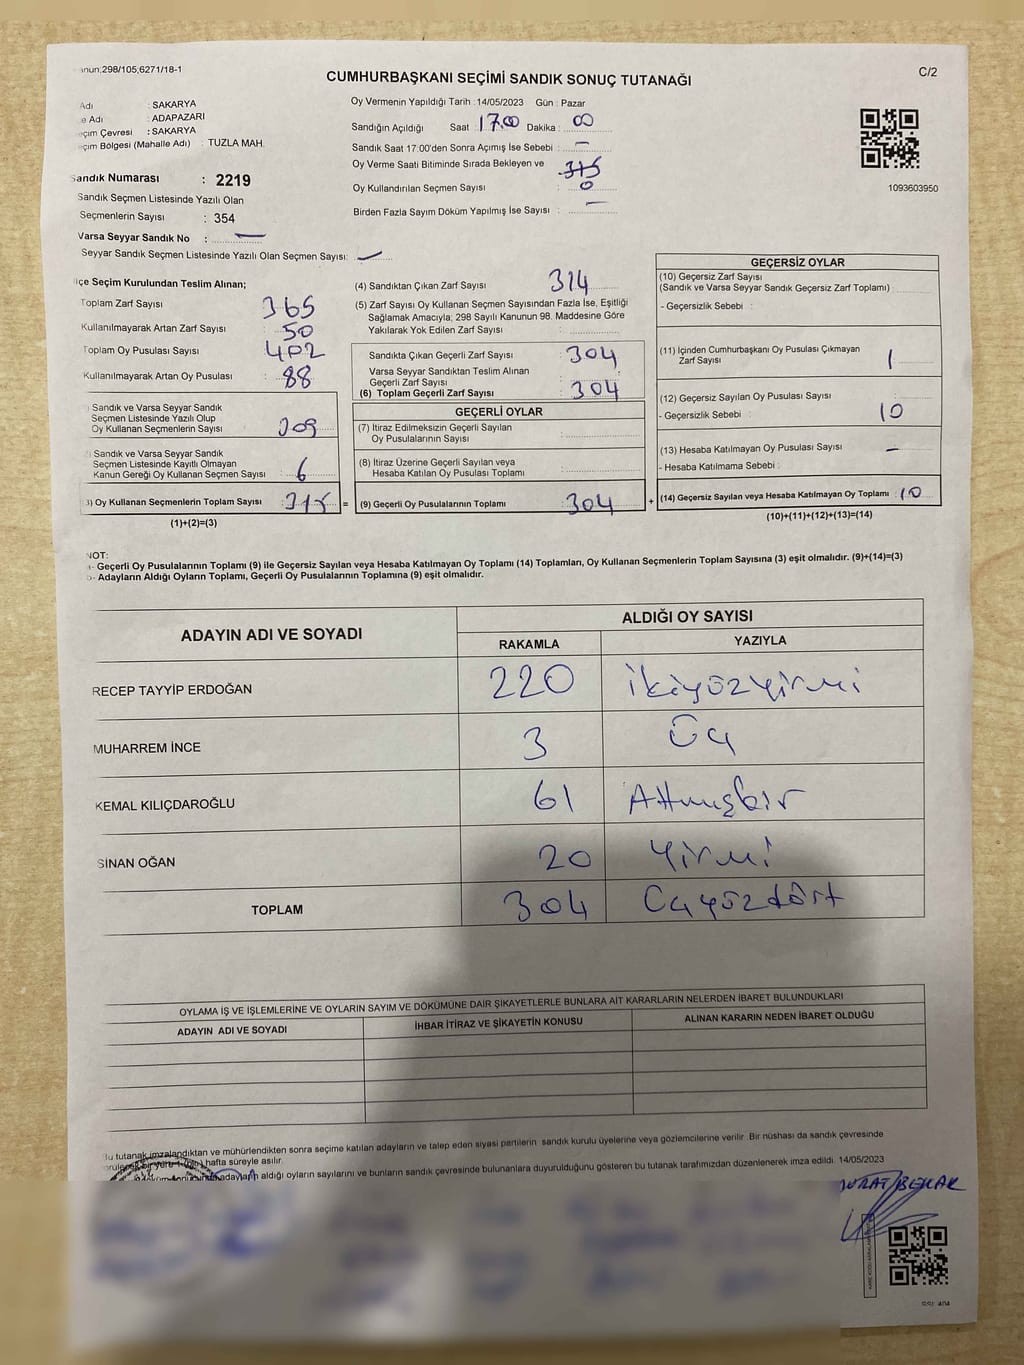 anun.298/105,6271/18-1
CUMHURBAŞKANI SEÇİMİ SANDIK SONUÇ TUTANAĞI
C/2
Adı : SAKARYA
e Adı : ADAPAZARI
eçim Çevresi : SAKARYA
eçim Bölgesi (Mahalle Adı) : TUZLA MAH.
Sandık Numarası : 2219
Sandık Seçmen Listesinde Yazılı Olan
Seçmenlerin Sayısı : 354
Varsa Seyyar Sandık No : —
Seyyar Sandık Seçmen Listesinde Yazılı Olan Seçmen Sayısı: —
Oy Vermenin Yapıldığı Tarih : 14/05/2023 Gün : Pazar
Sandığın Açıldığı Saat : 17.00 Dakika : 00
Sandık Saat 17:00'den Sonra Açımış İse Sebebi : —
Oy Verme Saati Bitiminde Sırada Bekleyen ve
Oy Kullandırılan Seçmen Sayısı : 0
Birden Fazla Sayım Döküm Yapılmış İse Sayısı : —
1093603950
lçe Seçim Kurulundan Teslim Alınan;
Toplam Zarf Sayısı : 365
Kullanılmayarak Artan Zarf Sayısı : 50
Toplam Oy Pusulası Sayısı : 402
Kullanılmayarak Artan Oy Pusulası : 88
) Sandık ve Varsa Seyyar Sandık
Seçmen Listesinde Yazılı Olup
Oy Kullanan Seçmenlerin Sayısı : 309
) Sandık ve Varsa Seyyar Sandık
Seçmen Listesinde Kayıtlı Olmayan
Kanun Gereği Oy Kullanan Seçmen Sayısı : 6
3) Oy Kullanan Seçmenlerin Toplam Sayısı : 315 =
(1)+(2)=(3)
(4) Sandıktan Çıkan Zarf Sayısı : 314
(5) Zarf Sayısı Oy Kullanan Seçmen Sayısından Fazla İse, Eşitliği
Sağlamak Amacıyla; 298 Sayılı Kanunun 98. Maddesine Göre
Yakılarak Yok Edilen Zarf Sayısı :
Sandıkta Çıkan Geçerli Zarf Sayısı : 304
Varsa Seyyar Sandıktan Teslim Alınan
Geçerli Zarf Sayısı
(6) Toplam Geçerli Zarf Sayısı : 304
GEÇERLİ OYLAR
(7) İtiraz Edilmeksizin Geçerli Sayılan
Oy Pusulalarının Sayısı :
(8) İtiraz Üzerine Geçerli Sayılan veya
Hesaba Katılan Oy Pusulası Toplamı :
(9) Geçerli Oy Pusulalarının Toplamı : 304 +
GEÇERSİZ OYLAR
(10) Geçersiz Zarf Sayısı
(Sandık ve Varsa Seyyar Sandık Geçersiz Zarf Toplamı) :
- Geçersizlik Sebebi :
(11) İçinden Cumhurbaşkanı Oy Pusulası Çıkmayan
Zarf Sayısı : 1
(12) Geçersiz Sayılan Oy Pusulası Sayısı
- Geçersizlik Sebebi : 10
(13) Hesaba Katılmayan Oy Pusulası Sayısı : —
- Hesaba Katılmama Sebebi :
(14) Geçersiz Sayılan veya Hesaba Katılmayan Oy Toplamı : 10
(10)+(11)+(12)+(13)=(14)
NOT:
- Geçerli Oy Pusulalarının Toplamı (9) ile Geçersiz Sayılan veya Hesaba Katılmayan Oy Toplamı (14) Toplamları, Oy Kullanan Seçmenlerin Toplam Sayısına (3) eşit olmalıdır. (9)+(14)=(3)
- Adayların Aldığı Oyların Toplamı, Geçerli Oy Pusulalarının Toplamına (9) eşit olmalıdır.
ADAYIN ADI VE SOYADI
ALDIĞI OY SAYISI
RAKAMLA YAZIYLA
RECEP TAYYİP ERDOĞAN 220 ikiyüzyirmi
MUHARREM İNCE 3 Üç
KEMAL KILIÇDAROĞLU 61 Altmışbir
SİNAN OĞAN 20 Yirmi
TOPLAM 304 Üçyüzdört
OYLAMA İŞ VE İŞLEMLERİNE VE OYLARIN SAYIM VE DÖKÜMÜNE DAİR ŞİKAYETLERLE BUNLARA AİT KARARLARIN NELERDEN İBARET BULUNDUKLARI
ADAYIN ADI VE SOYADI İHBAR İTİRAZ VE ŞİKAYETİN KONUSU ALINAN KARARIN NEDEN İBARET OLDUĞU
Bu tutanak imzalandıktan ve mühürlendikten sonra seçime katılan adayların ve talep eden siyasi partilerin sandık kurulu üyelerine veya gözlemcilerine verilir. Bir nüshası da sandık çevresinde
hafta süreyle asılır.
adayların aldığı oyların sayılarını ve bunların sandık çevresinde bulunanlara duyurulduğunu gösteren bu tutanak tarafımızdan düzenlenerek imza edildi. 14/05/2023